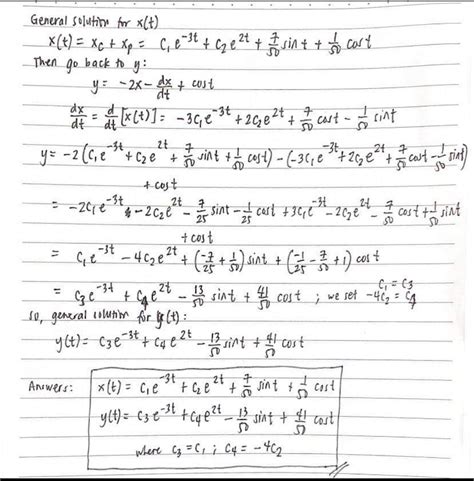 General solution for x(t)
x(t) = x_c + x_p = c₁e^{-3t} + c₂e^{2t} + 7/50 sint + 1/50 cost
Then go back to y:
y = -2x - dx/dt + cost
dx/dt = d/dt [x(t)] = -3c₁e^{-3t} + 2c₂e^{2t} + 7/50 cost - 1/50 sint
y = -2(c₁e^{-3t} + c₂e^{2t} + 7/50 sint + 1/50 cost) - (-3c₁e^{-3t} + 2c₂e^{2t} + 7/50 cost - 1/50 sint)
+ cost
= -2c₁e^{-3t} - 2c₂e^{2t} - 7/25 sint - 1/25 cost + 3c₁e^{-3t} - 2c₂e^{2t} - 7/50 cost + 1/50 sint
+ cost
= c₁e^{-3t} - 4c₂e^{2t} + (-7/25 + 1/50) sint + (-1/25 - 7/50 + 1) cost
= c₃e^{-3t} + c₄e^{2t} - 13/50 sint + 41/50 cost ; we set c₁ = c₃ -4c₂ = c₄
so, general solution for y(t):
y(t) = c₃e^{-3t} + c₄e^{2t} - 13/50 sint + 41/50 cost
Answers: x(t) = c₁e^{-3t} + c₂e^{2t} + 7/50 sint + 1/50 cost
y(t) = c₃e^{-3t} + c₄e^{2t} - 13/50 sint + 41/50 cost
where c₃ = c₁ ; c₄ = -4c₂